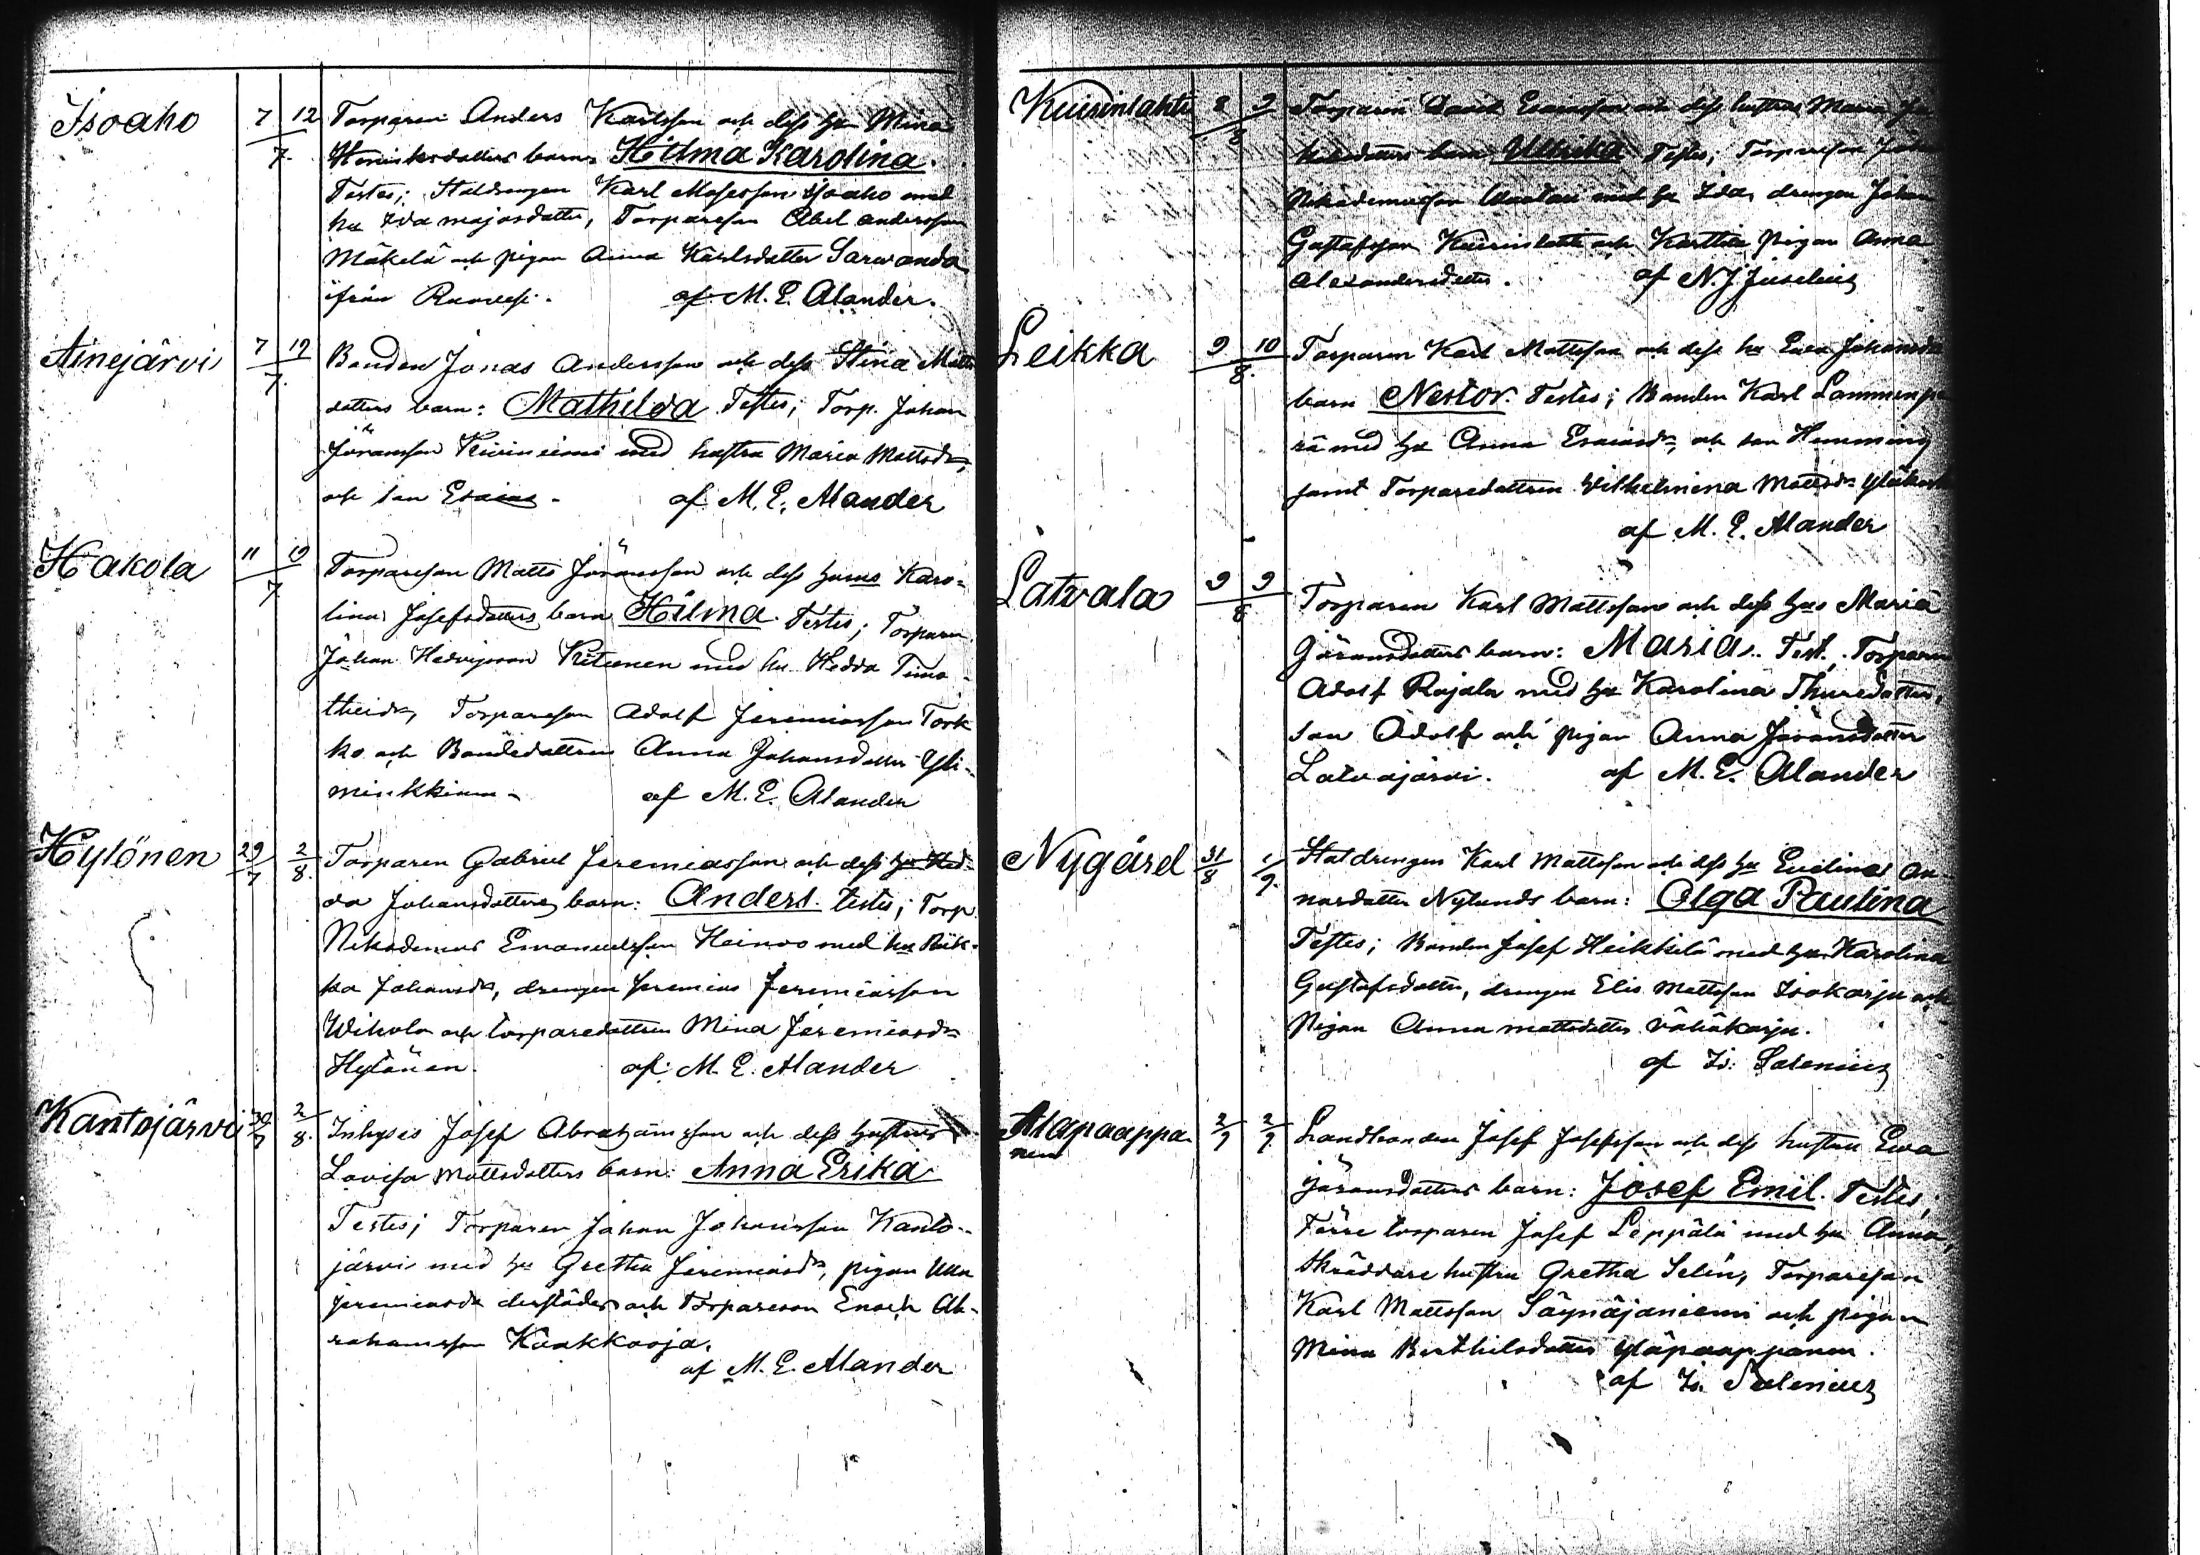 Isoaho 7 12/7. Torparen Anders Karlsson och dess hu Mina
Henriksdotters barn Hilma Karolina.
Testes; Staldrengen Karl Mosesson Isoaho med
hu Ida majasdotter, Torpareson Abel andersson
Mäkelä och pigan Anna Karlsdotter Sarwanda
ifrån Ruovesi. af M. E. Alander.
Ainejärvi 7 19/7. Bonden Jonas Andersson och dess Stina Matts
dotters barn: Mathilda Testes; Torp. Johan
Jöransson Kiviniemi med hustru Maria Mattsdr,
och son Esaias. af M. E. Alander
Hakola 11 19/7 Torpareson Matts Jöransson och dess hus Karo-
lina Josefsdotters barn Hilma. Testes; Torparen
Johan Kitunen med hu Hedda Timo-
theidr, Torpareson Adolf Jeremiasson Tork
ko och Bondedottren Anna Johansdotter Yli-
af M. E. Alander
Hylönen 29/7 2/8. Torparen Gabriel Jeremiasson och dess hu Hed-
da Johansdotters barn: Anders. testes; Torp.
Nikodemus Emanuelsson Heinoo med hu
Johansdr, drengen Jeremias Jeremiasson
Wikola och torparedottren Mina Jeremiasdr
Hylönen. af M. E. Alander
Kantojärvi 30/7 2/8. Inhyses Josef Abrahamsson och dess hustrus
Lovisa Mattsdotters barn: Anna Erika
Testes; Torparen Johan Johansson Kanto-
järvi med hu Gretha Jeremiasdr, pigan Ulla
Jeremiasdr derstädes och Torpareson Enoch Ab-
rahamsson Kaakkooja.
af M. E. Alander
Kuirinlahti 8 9/8 Torparen David Esaiasson och dess hustrus Maria
barn Ulrika Testes; Torpareson
Nikodemusson med hu Ida, drengen Johan
Gustafsson Kuirinlahti och pigan Anna
Alexandersdotter. af N. J. Juselius
Leikka 9 10/8. Torparen Karl Mattsson och dess hu Eva Johansdr
barn Nestor. Testes; Bonden Karl Lamminpä
rä med hu Anna Esaiasdr, och son Hemming
samt Torparedottren Wilhelmina Mattsdr
af M. E. Alander
Latvala 9 9/8 Torparen Karl Mattsson och dess hus Maria
Göransdotters barn: Maria. Test. Torparen
Adolf Rajala med hu Karolina Thuredotter,
son Adolf och pigan Anna Jöransdotter
Latvajärvi. af M. E. Alander
Nygård 31/8 1/9. Statdrengen Karl Mattsson och dess hu Evelina An-
narsdotter Nylunds barn: Olga Paulina
Testes; Bonden Josef Heikkilä med hu Karolina
Gustafsdotter, drengen Elis Mattsson Isokarju och
Pigan Anna mattsdotter Vähäkarju.
af Is. Salenius
Alapaappa-
nen 2/9 2/9 Landbonden Josef Josefsson och dess hustru Eva
Jöransdotters barn: Josef Emil. Testes;
Förre torparen Josef Leppälä med hu Anna,
skräddare hustru Gretha Selin, Torpareson
Karl Mattsson Säynäjäniemi och pigan
Mina Berthilsdotter Yläpaappanen.
af Is. Salenius